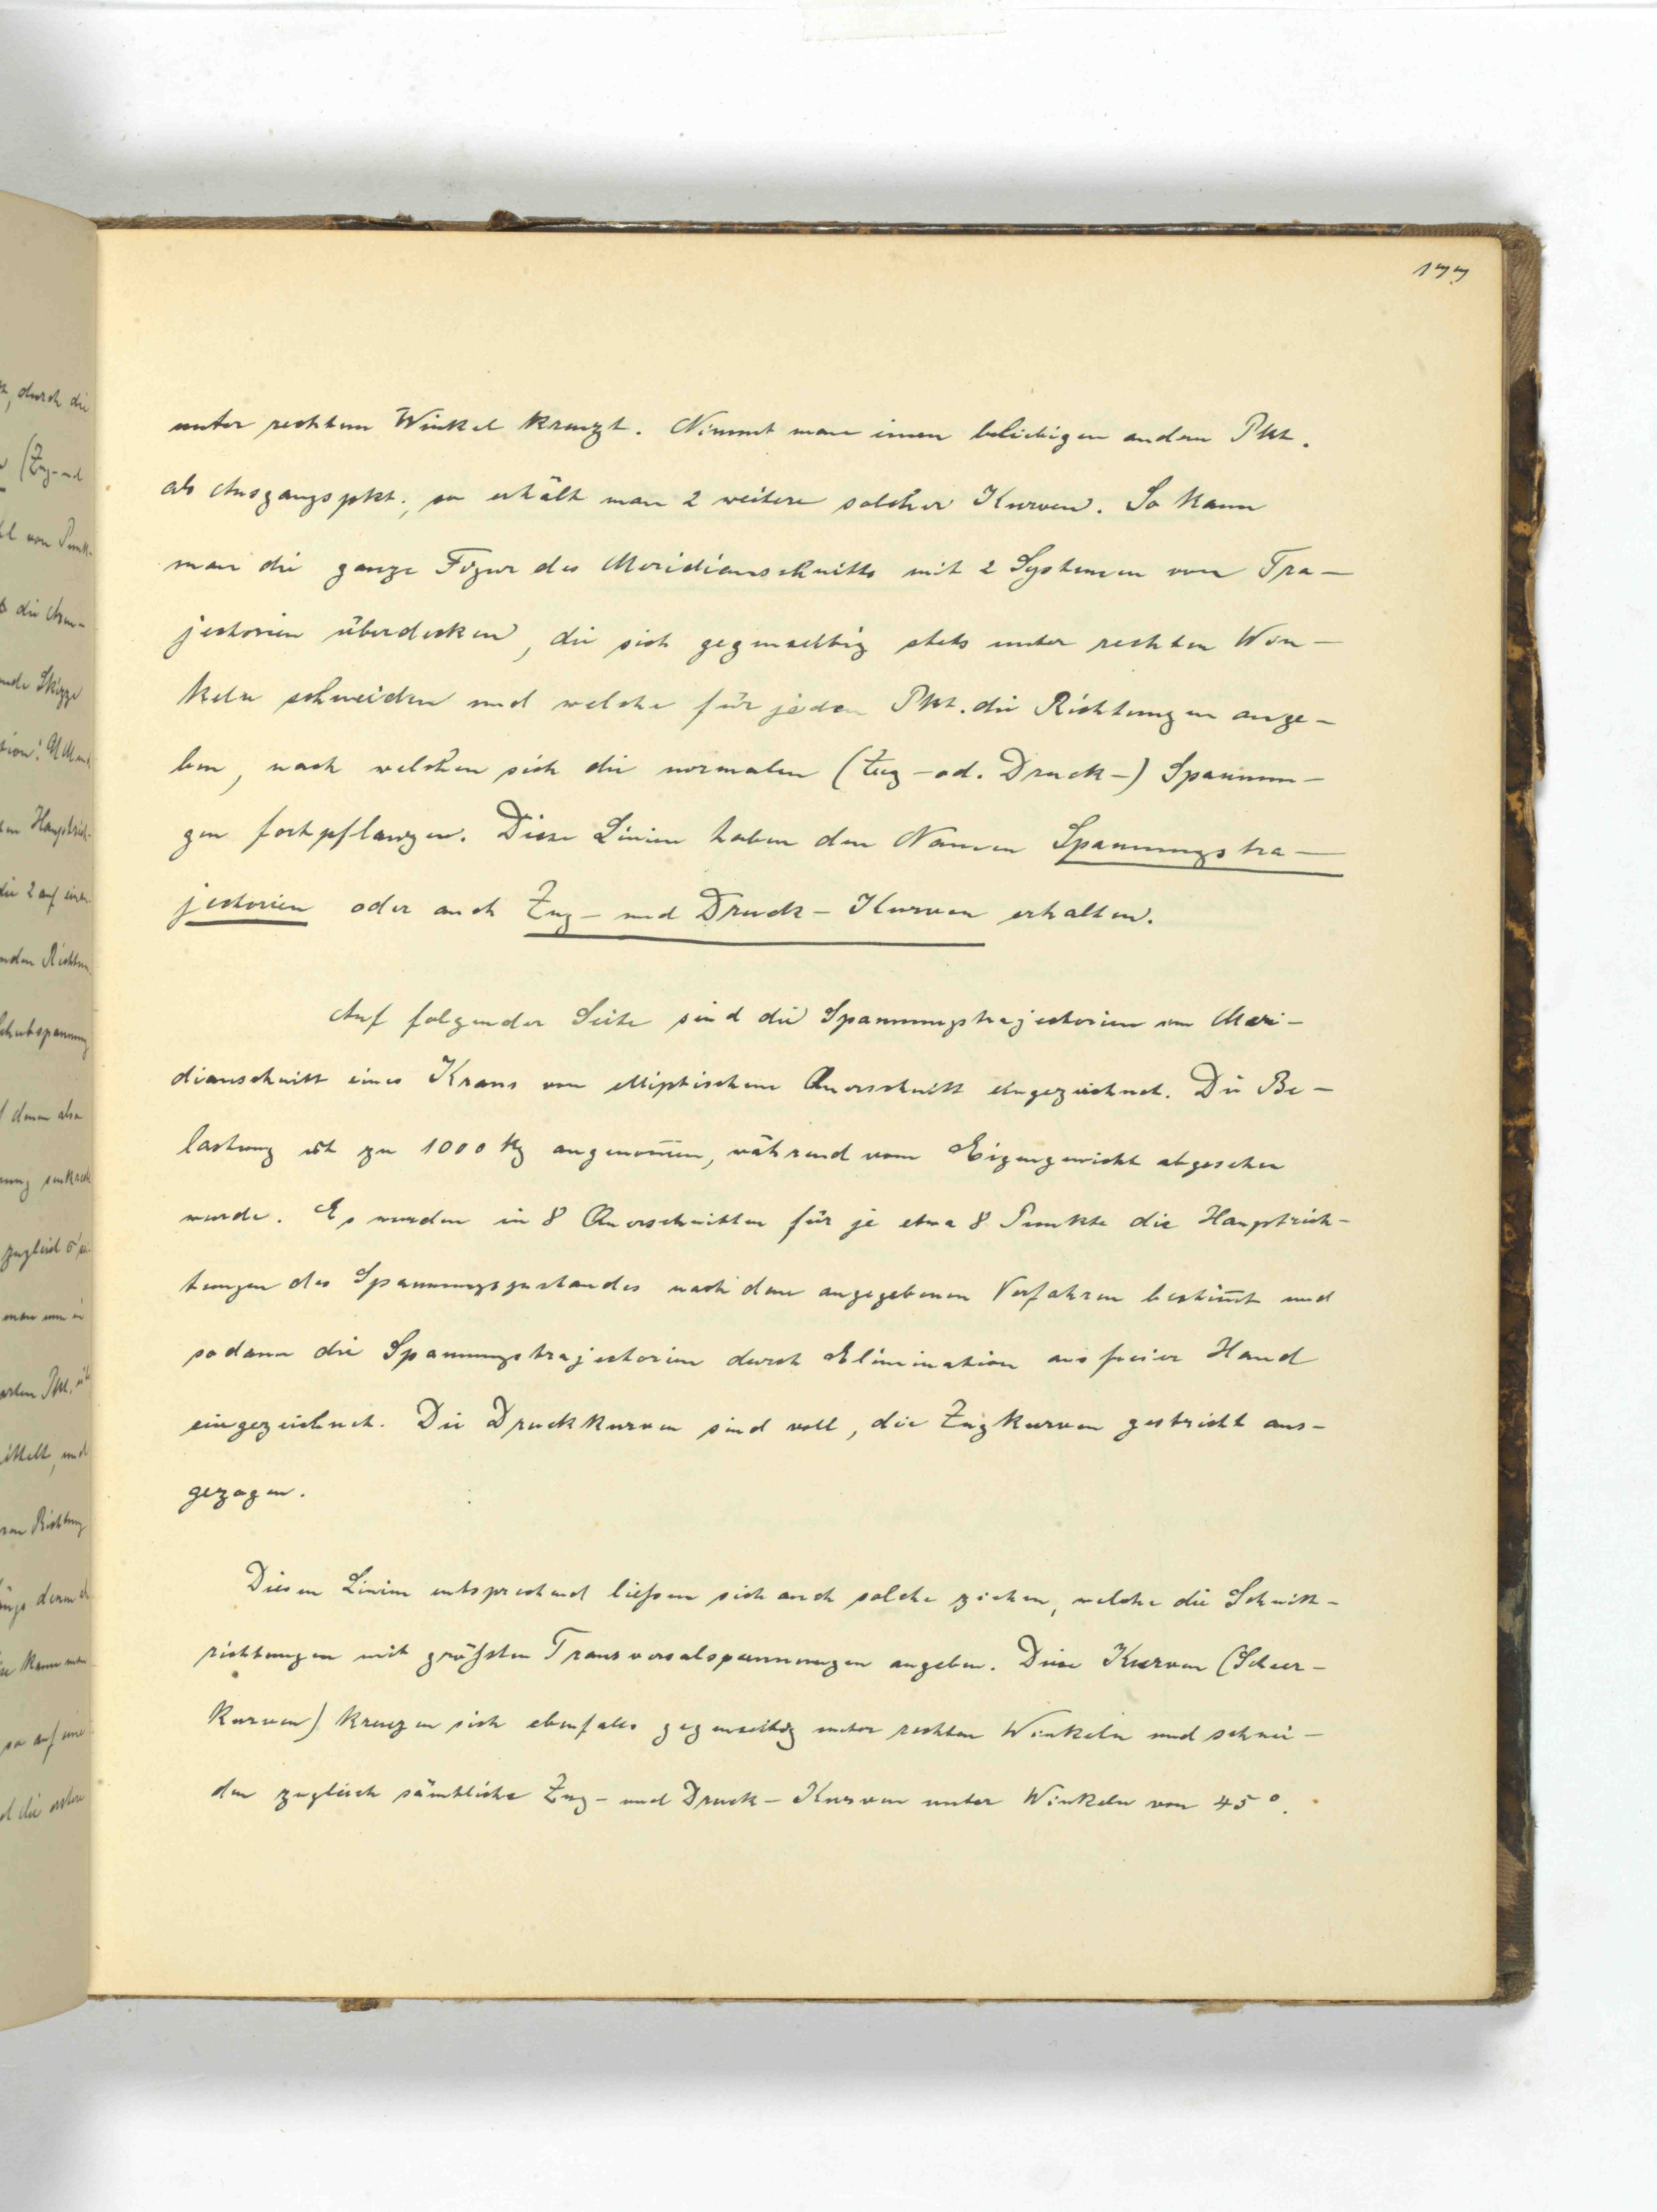 177
unter rechtem Winkel kreuzt. Nimmt man einen beliebigen andern Pkt.
als Ausgangspkt., so erhält man 2 weitere solcher Kurven. So kann
man die ganze Figur des Meridianschnitts mit 2 Systemen von Tra-
jectorien überdecken, die sich gegenseitig stets unter rechten Win-
keln schneiden und welche für jeden Pkt. die Richtungen ange-
ben, nach welchen sich die normalen (Zug- od. Druck-) Spannun-
gen fortpflanzen. Diese Linien haben den Namen Spannungstra-
jectorien oder auch Zug- und Druck-Kurven erhalten.
Auf folgender Seite sind die Spannungstrajectorien im Meri-
dianschnitt eines Krans von elliptischem Querschnitt eingezeichnet. Die Be-
lastung ist zu 1000 kg angenom̅en, während vom Eigengewicht abgesehen
wurde. Es wurden in 8 Querschnitten für je etwa 8 Punkte die Hauptrich-
tungen des Spannungszustandes nach dem angegebenen Verfahren bestim̅t und
sodann die Spannungstrajectorien durch Elimination aus freier Hand
eingezeichnet. Die Druckkurven sind voll, die Zugkurven gestricht aus-
gezogen.
Diesen Linien entsprechend ließen sich auch solche ziehen, welche die Schnitt-
richtungen mit größten Transversalspannungen angeben. Diese Kurven (Scheer-
kurven) kreuzen sich ebenfalls gegenseitig unter rechten Winkeln und schnei-
den zugleich sämtliche Zug- und Druck-Kurven unter Winkeln von 45°.
durch die
(Zug- und
von Punk-
die
Skizze
Hauptrich-
die 2 auf
Richtun
Schubspannung
denen also
senkrecht
zugleich
man nun in
Pkt.
ittelt, und
Richtung
kann man
so auf eine